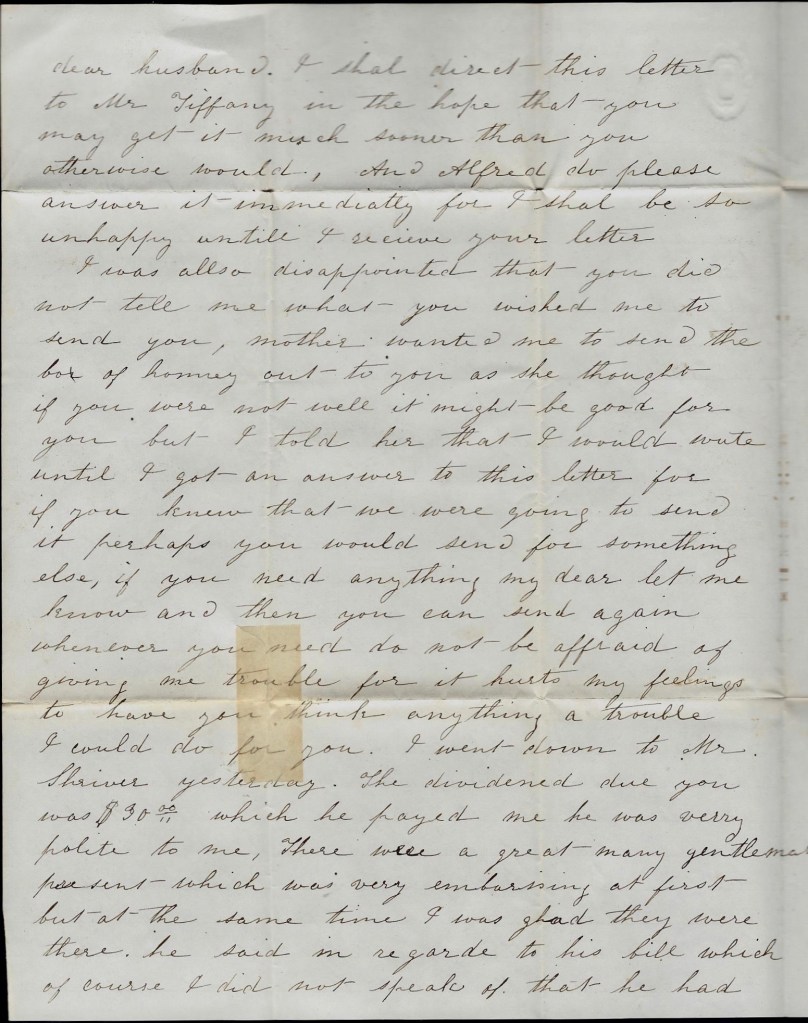 dear husband. I shal direct this letter
to Mr Tiffany in the hope that you
may get it much sooner than you
otherwise would, And Alfred do please
answer it immediatly for I shal be so
unhappy untill I recieve your letter
I was allso disappointed that you did
not tell me what you wished me to
send you, mother wanted me to send the
box of honney out to you as she thought
if you were not well it might be good for
you but I told her that I would wate
until I got an answer to this letter for
if you knew that we were going to send
it perhaps you would send for something
else, if you need anything my dear let me
know and then you can send again
whenever you need do not be affraid of
giving me trouble for it hurts my feelings
to have you think anything a trouble
I could do for you. I went down to Mr.
Shriver yesterday. The dividened due you
was $30 00 which he payed me he was verry
polite to me, There were a great many gentleman
present which was very embarising at first
but at the same time I was glad they were
there. he said in regarde to his bill which
of course I did not speak of. that he had